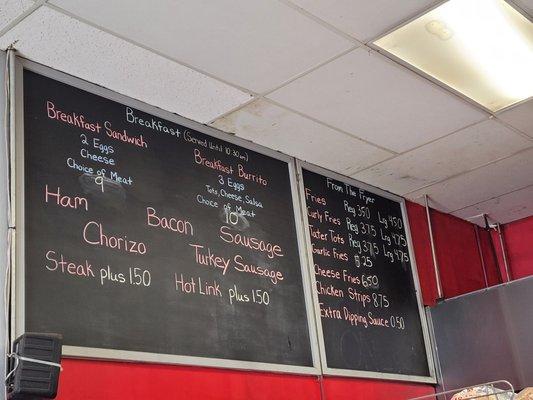 Breakfast (Served Until 10:30am)
Breakfast Sandwich
2 Eggs
Cheese
Choice of Meat
9
Breakfast Burrito
3 Eggs
Tots, Cheese, Salsa
Choice of Meat
10
Ham
Bacon
Sausage
Chorizo
Turkey Sausage
Steak plus 1.50
Hot Link plus 1.50
From The Fryer
Fries Reg 3.50 Lrg 4.95
Curly Fries Reg 3.75 Lrg 4.75
Tater Tots Reg 3.75 Lrg 4.75
Garlic Fries
Cheese Fries 6.50
Chicken Strips 8.75
Extra Dipping Sauce 0.50